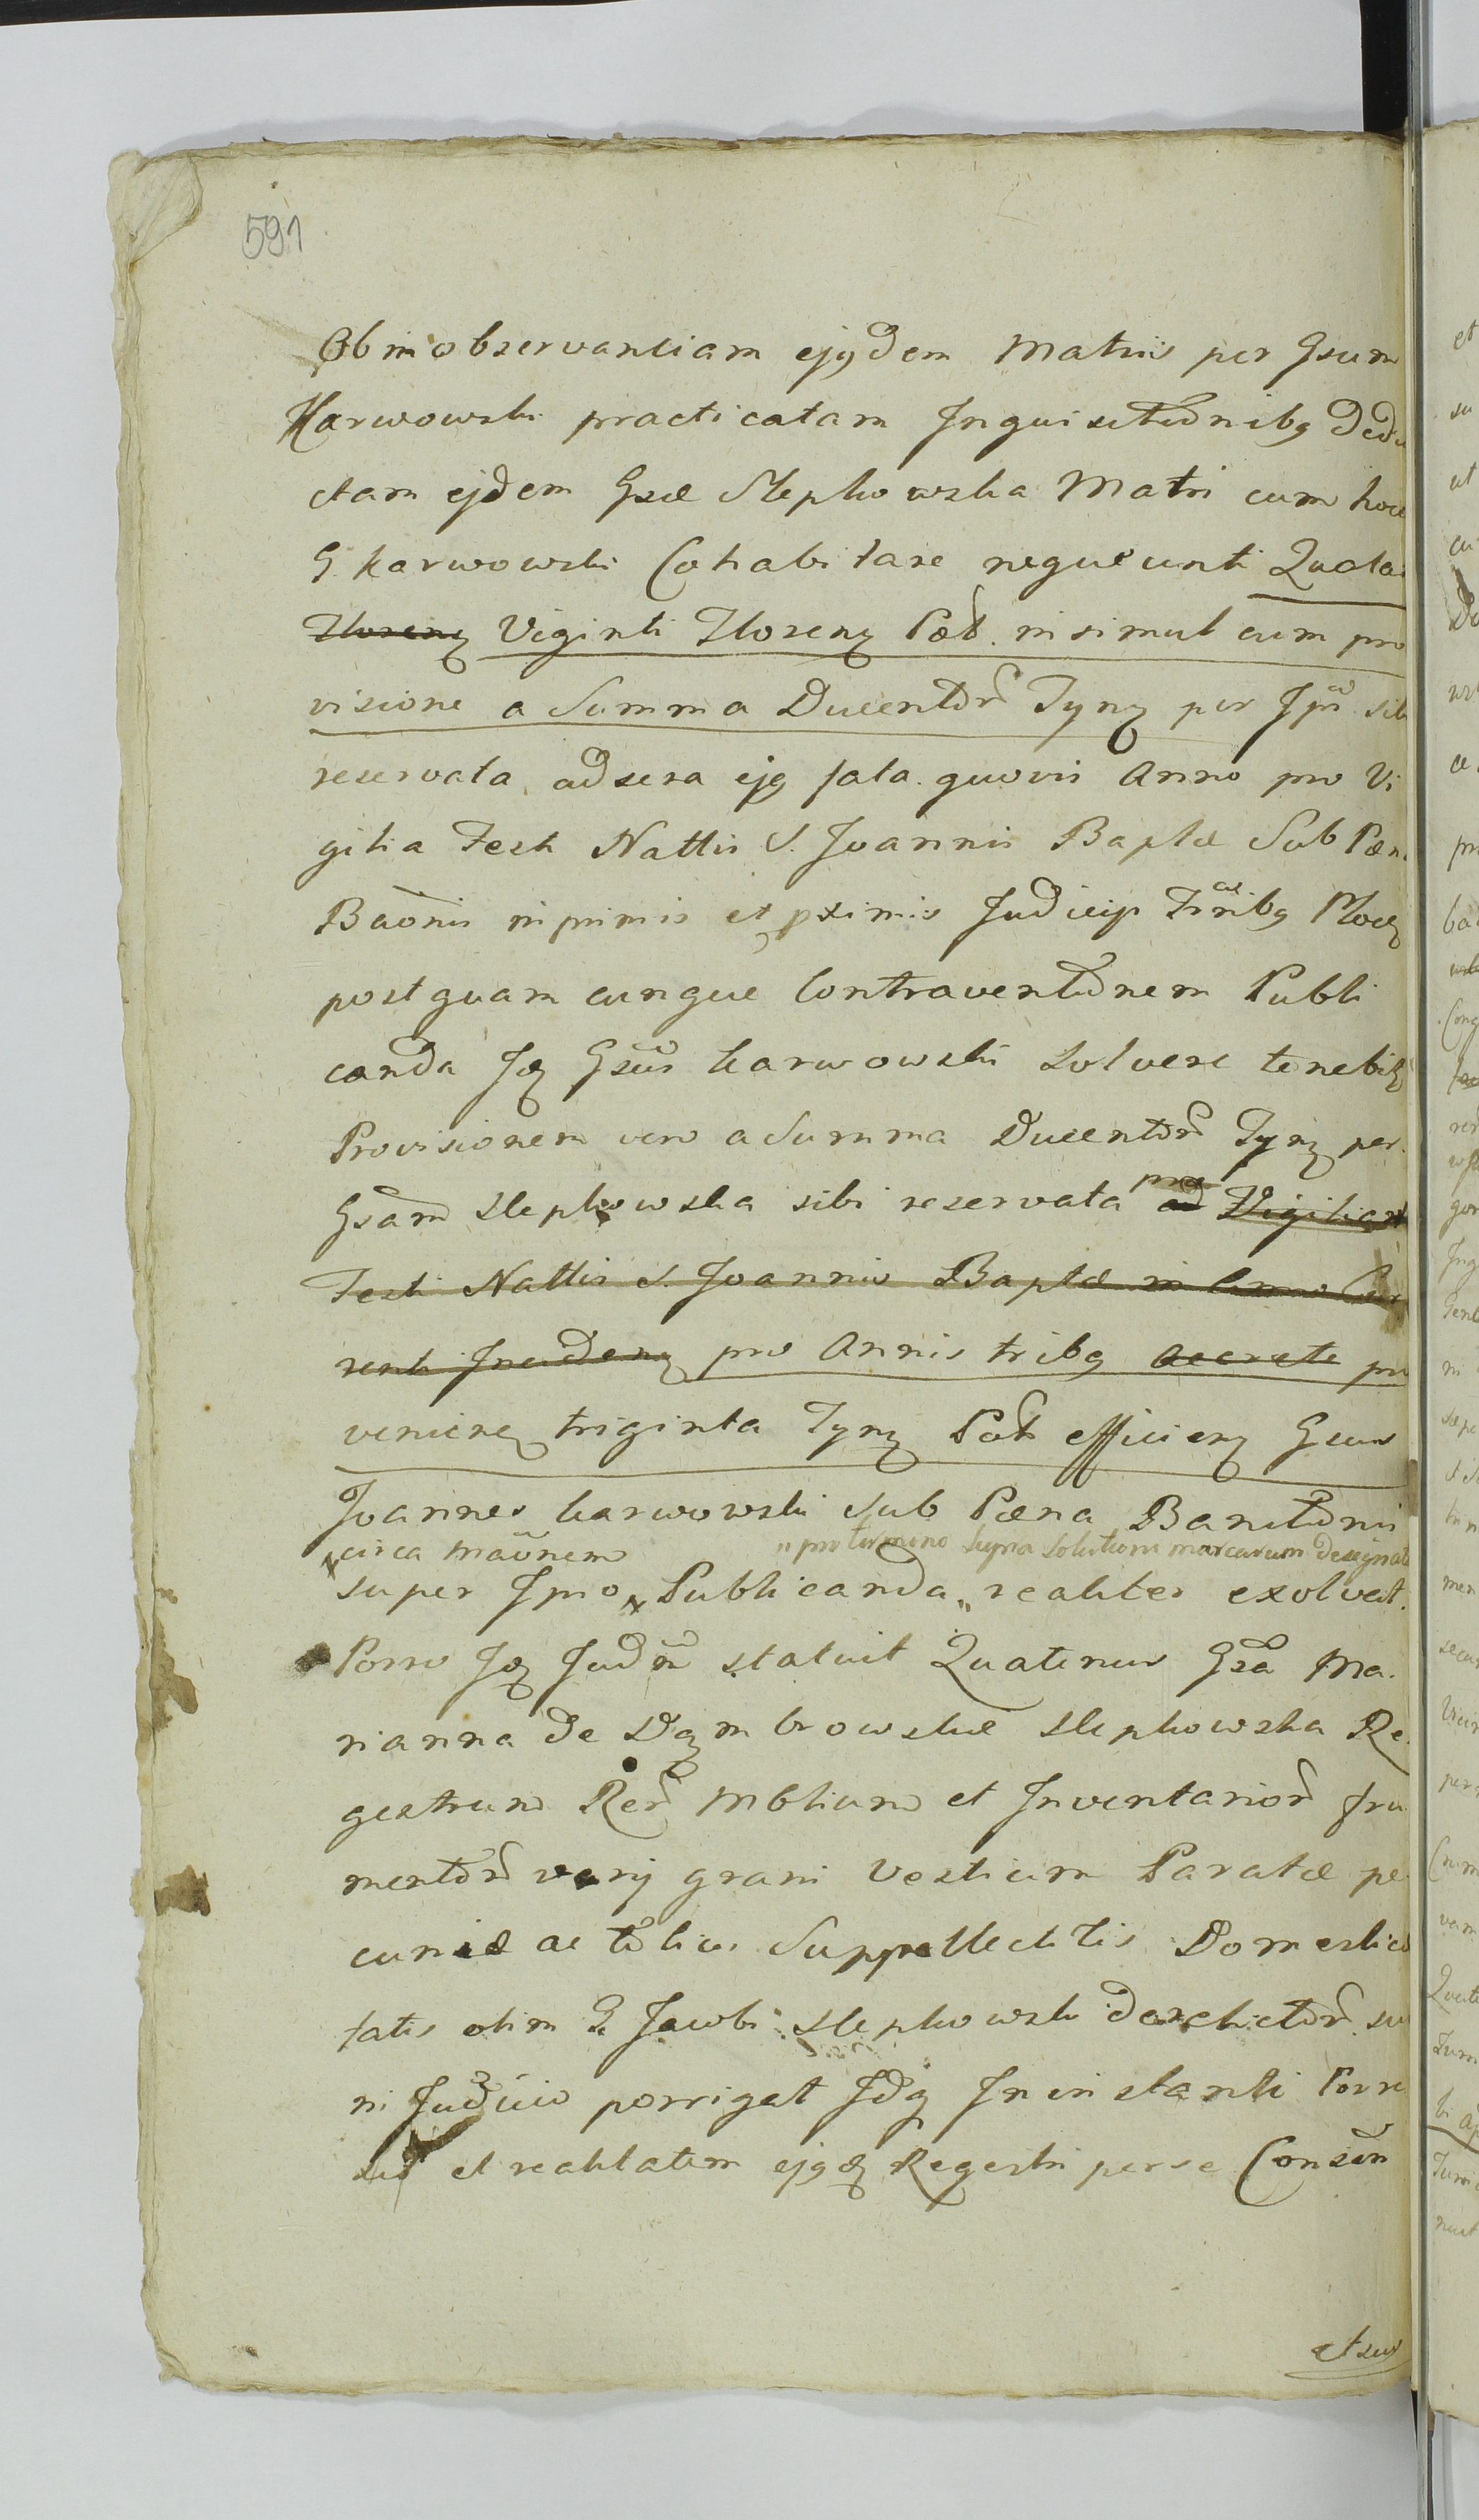 591
Ob inobservantiam ejqdem Matris per Gsum
Karwowski practicatam Inquisitiõnibq Dedu
ctam ejdem Gsæ Slepkowska Matri cum hoc
G. Karwowski Cohabitare nequeunti
Florenq Viginti Florenq Pol. in simul cum pro
visione a Summa Ducentor Tynq per Ipã sibi
reservata ad sera ejq fata quovis Anno pro Vi
gilia Festi Nattis S. Joannis Baptæ Sub Pæn
Baõnis in primis et pximis Judicijs Fribq Plocq
post quam cunque Contraventiõnem Publi
canda Iq Gsûs Karwowski Solvere tenebit
Provisionem vero a Summa Ducentor Tynq per
Gsam Slepkowska sibi reservata pro ad Vigiliam
Festi Nattis S. Joannis Baptæ in Anno Cur
renti Incidenq pro Annis tribq pro
venienq triginta Tynq Pol efficienq Gsus
Joannes Karwowski Sub Pæna Banitiõnis
circa maõnem " pro termino supra solutioni marcarum designat
super Ipso Publicanda " realiter exolvat.
Porro Iq Judm statuit Quatenus Gsa Ma
rianna de Dąmbrowskie Slepkowska Re
gestrum Rer Mblium et Inventarior fru
mentor varij grani Vestium Paratæ pe
cuniæ ac totius Suppellectilis Domestica
tatis olim G. Jacobi Slepkowski derelictor su
in Judicio porrigat Idq In instanti Porre
xit et realitatem ejqdq Regestri per se Consin
et sur